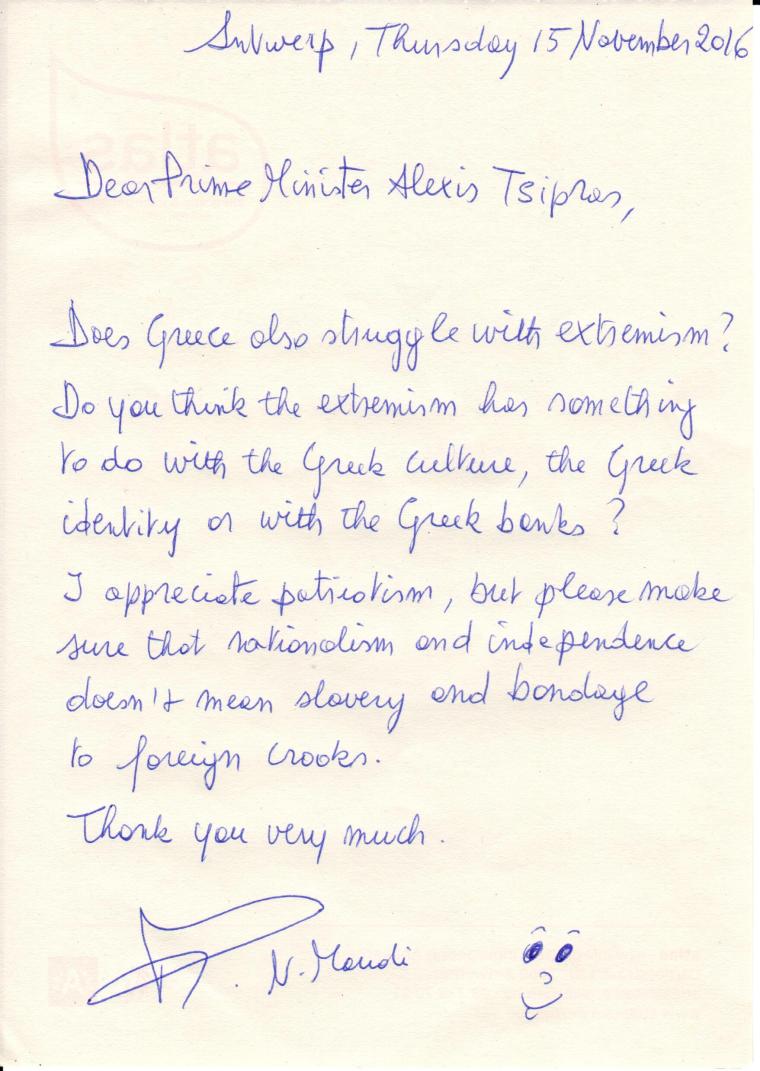 Antwerp, Thursday 15 November 2016
Dear Prime Minister Alexis Tsipras,
Does Greece also struggle with extremism?
Do you think the extremism has something
to do with the Greek culture, the Greek
identity or with the Greek banks?
I appreciate patriotism, but please make
sure that nationalism and independence
doesn't mean slavery and bondage
to foreign crooks.
Thank you very much.
N. Maudi
atlas